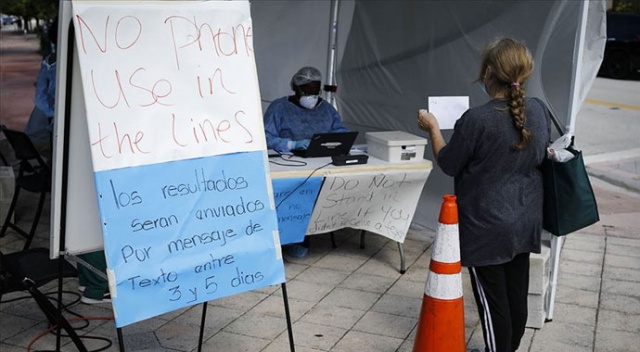 No phone
Use in
the lines
los resultados
seran enviados
Por mensaje de
Texto entre
3 y 5 dias
Do Not
Stand in
line If you